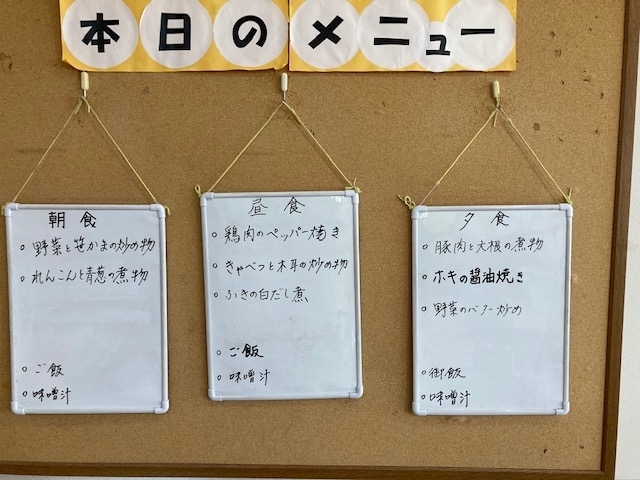 本日のメニュー
朝食
○ 野菜と笹かまの炒め物
○ れんこんと青葱の煮物
○ ご飯
○ 味噌汁
昼食
○ 鶏肉のペッパー焼き
○ きゃべつと木耳の炒め物
○ ふきの白だし煮
○ ご飯
○ 味噌汁
夕食
○ 豚肉と大根の煮物
○ ホキの醤油焼き
○ 野菜のバター炒め
○ 御飯
○ 味噌汁